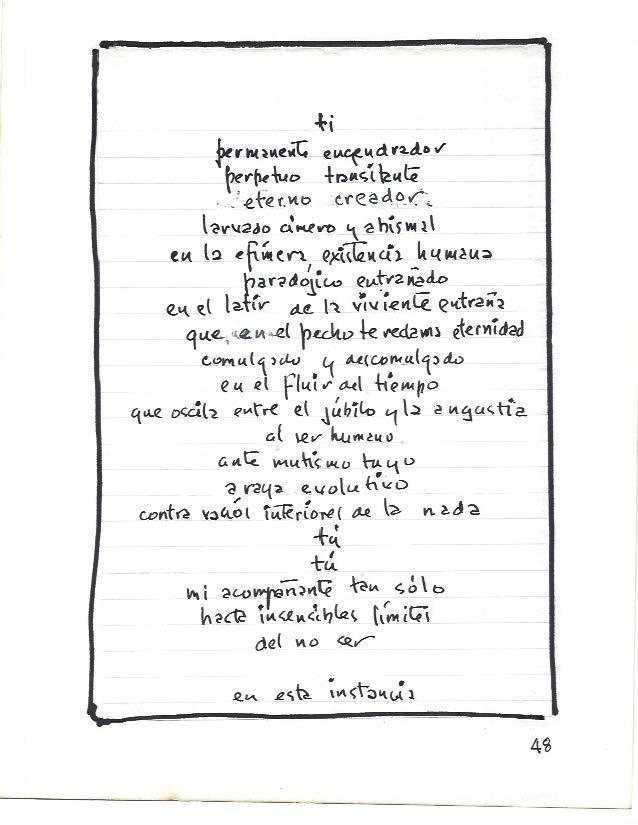 ti
permanente engendrador
perpetuo transitante
eterno creador
larvado cimero y abismal
en la efímera existencia humana
paradójico entrañado
en el latir de la viviente entraña
que en el pecho te reclama eternidad
comulgado y descomulgado
en el fluir del tiempo
que oscila entre el júbilo y la angustia
al ser humano
ante mutismo tuyo
a raya evolutivo
contra vacíos interiores de la nada
tú
tú
mi acompañante tan sólo
hasta insensibles límites
del no ser
en esta instancia
48